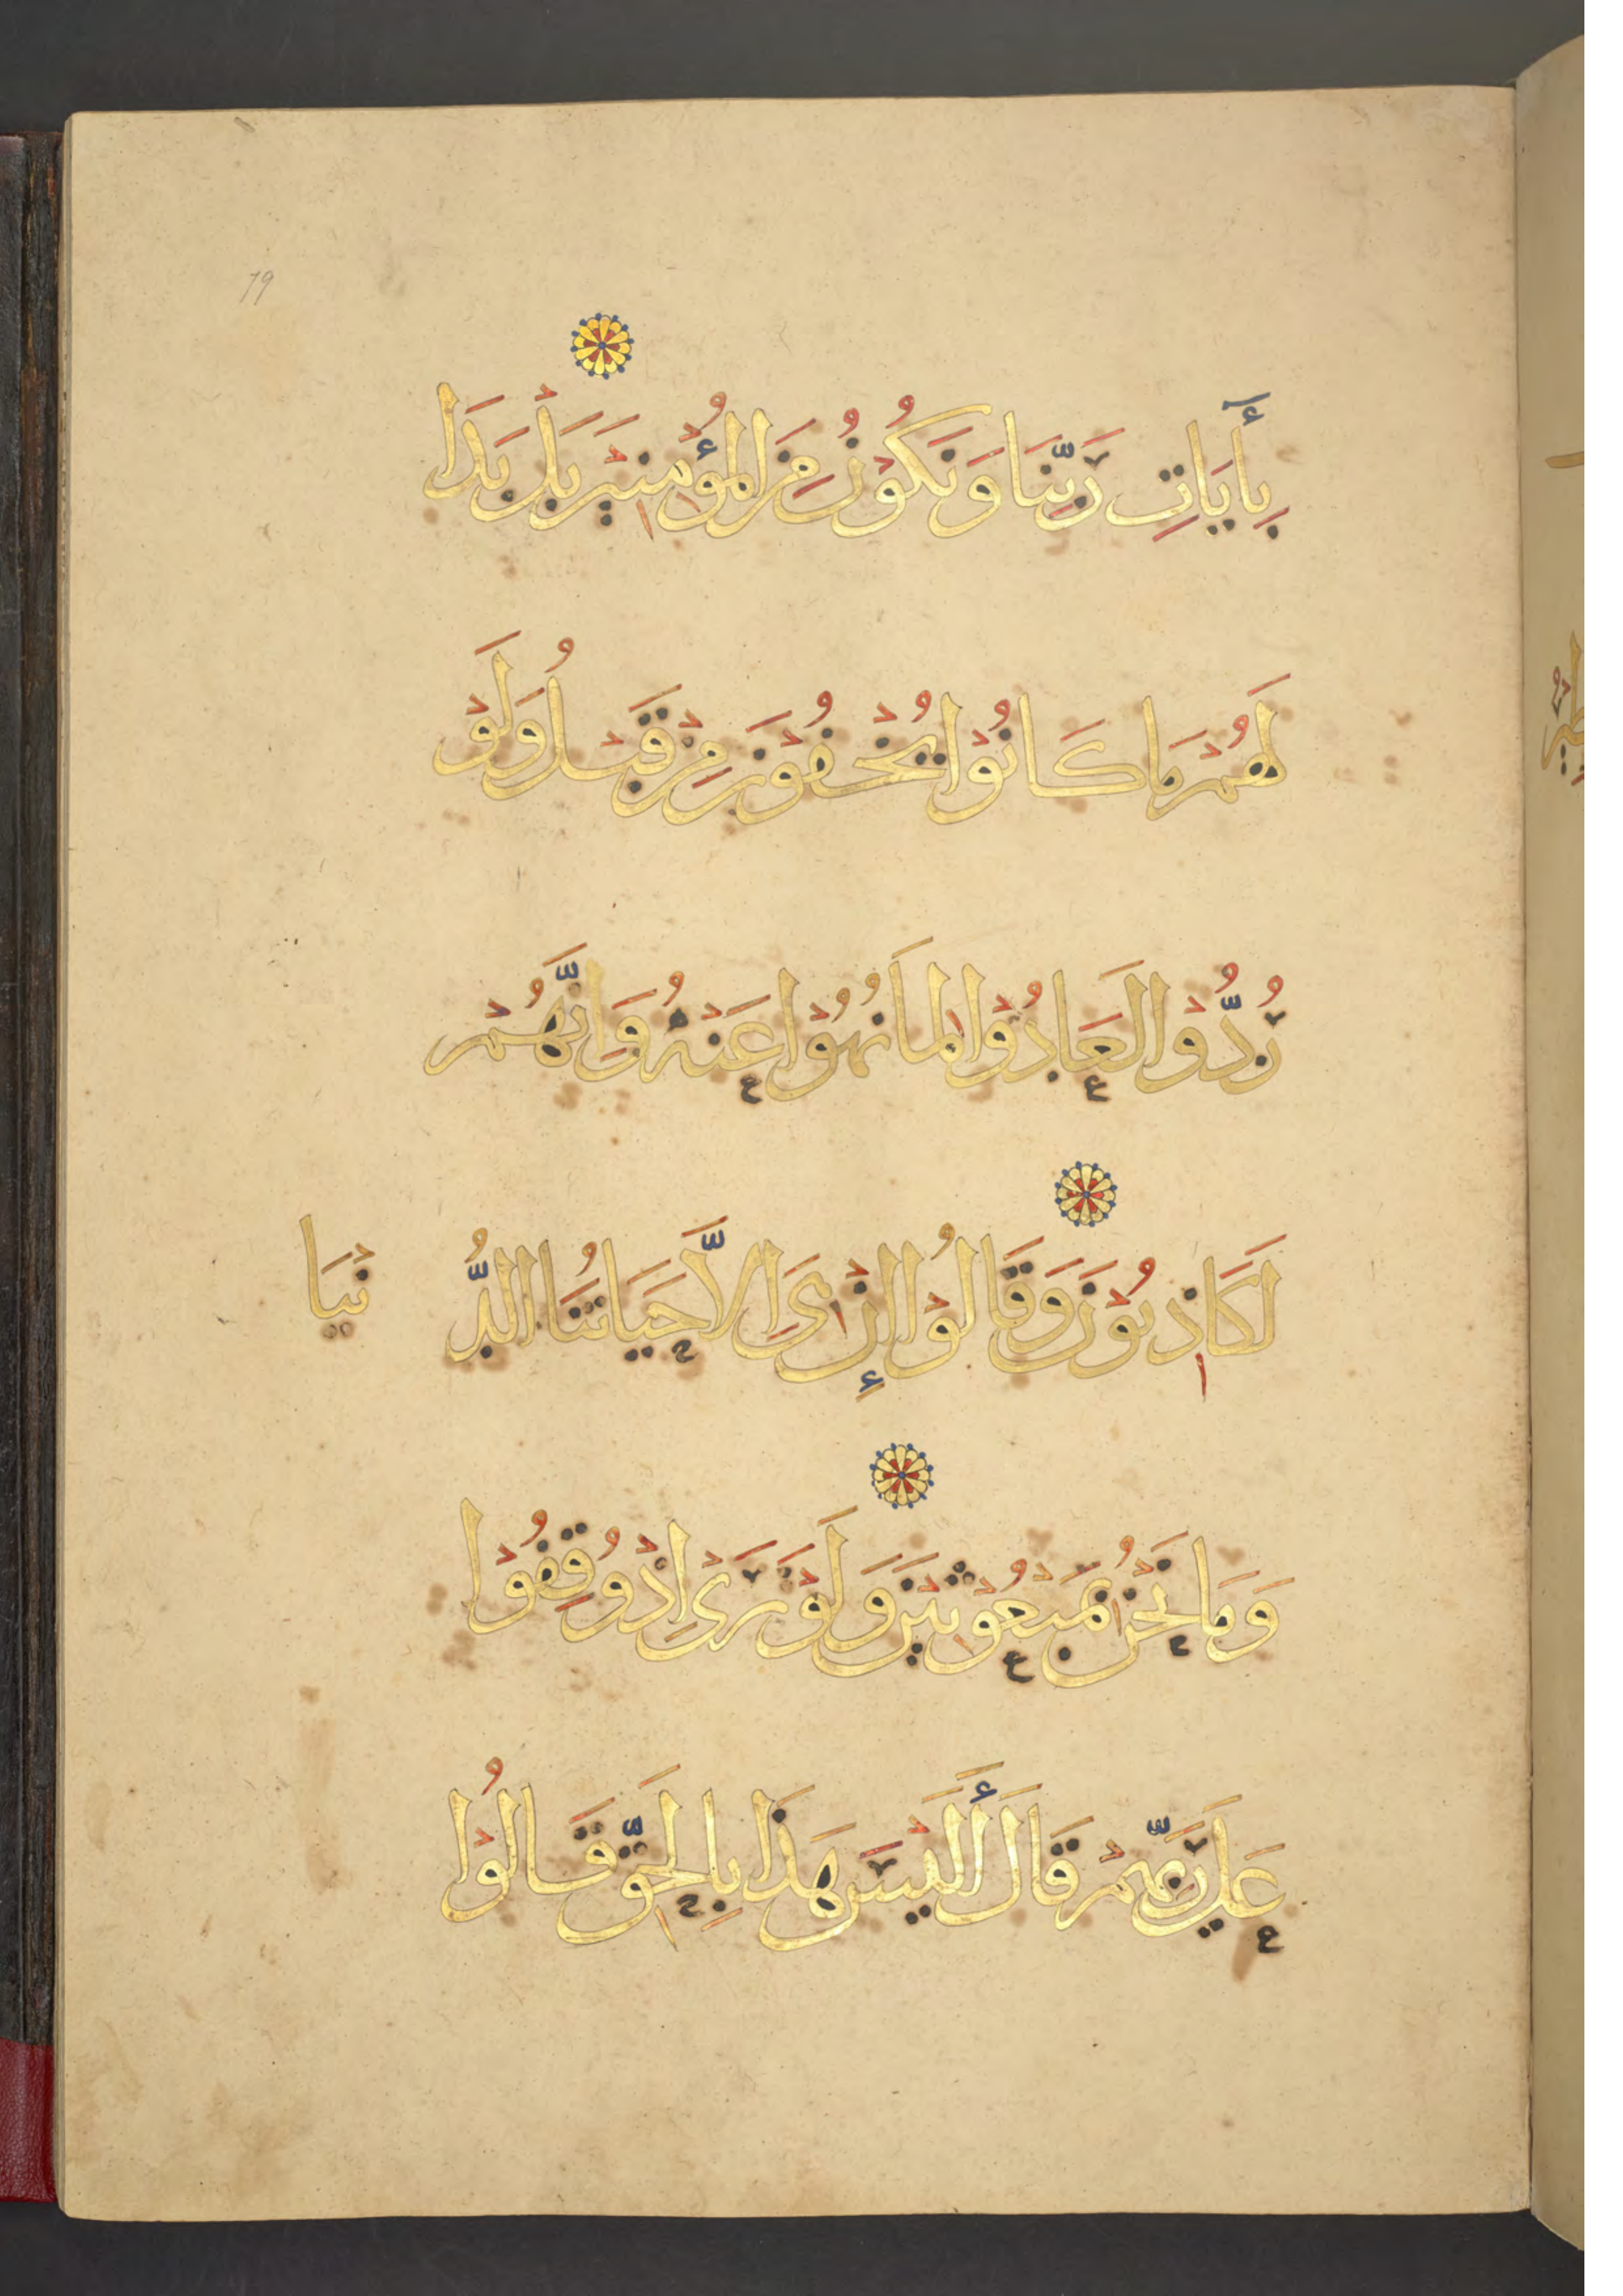 79
بِأَيَاتِ رَبِّنَا وَنَكُوْنُ مِنَ الْمُؤْمِنِيْنَ بَلْ بَدَا
لَهُمْ مَا كَانُوْا يُخْفُوْنَ مِنْ قَبْلُ وَلَوْ
رُدُّوْا لَعَادُوْا لِمَا نُهُوْا عَنْهُ وَاِنَّهُمْ
لَكَاذِبُوْنَ وَقَالُوْا إِنْ هِىَ اِلاَّ حَيَاتُنَا الدُّنْيَا
وَمَا نَحْنُ بِمَبْعُوْثِيْنَ وَلَوْ تَرَىٰ اِذْ وُقِفُوْا
عَلَىٰ رَبِّهِمْ قَالَ أَلَيْسَ هَذَا بِالْحَقِّ قَالُوْا